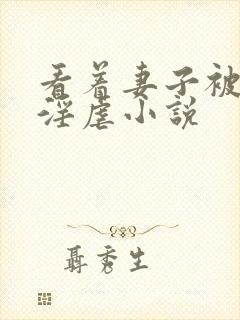 看着妻子被
淫虐小说
聂秀生